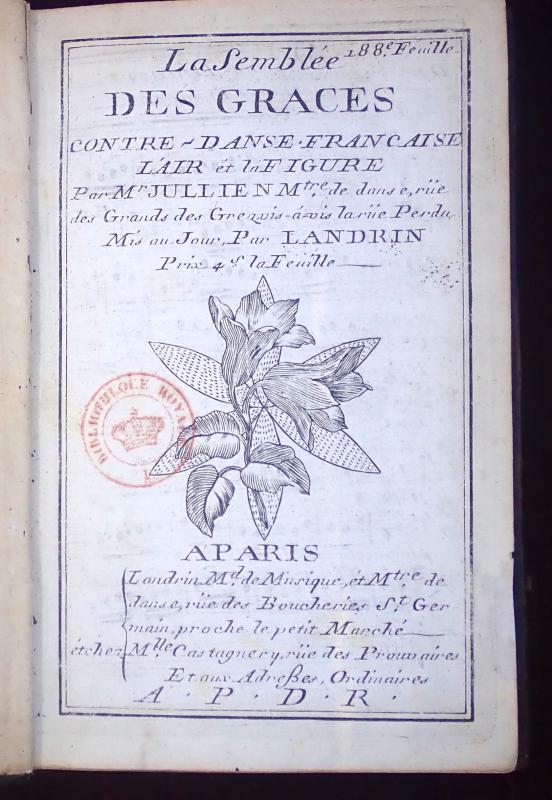 La Semblée 188.e Feuille
DES GRACES
CONTRE-DANSE FRANCAISE
L'AIR ét la FIGURE
Par Mr JULLIEN Mtre de danse, rüe
des Grands des Gre vis-á-vis la rüe Perdu
Mis au Jour, Par LANDRIN
Prix 4s la Feuille
BIBLIOTHEQUE ROYALE
A PARIS
Landrin Md de Musique, ét Mtre de
danse, rüe des Boucheries St Ger
main, proche le petit Marché
ét chez Mlle Castagnery, rüe des Prouvaires
Et aux Adreßes, Ordinaires
A . P . D . R .